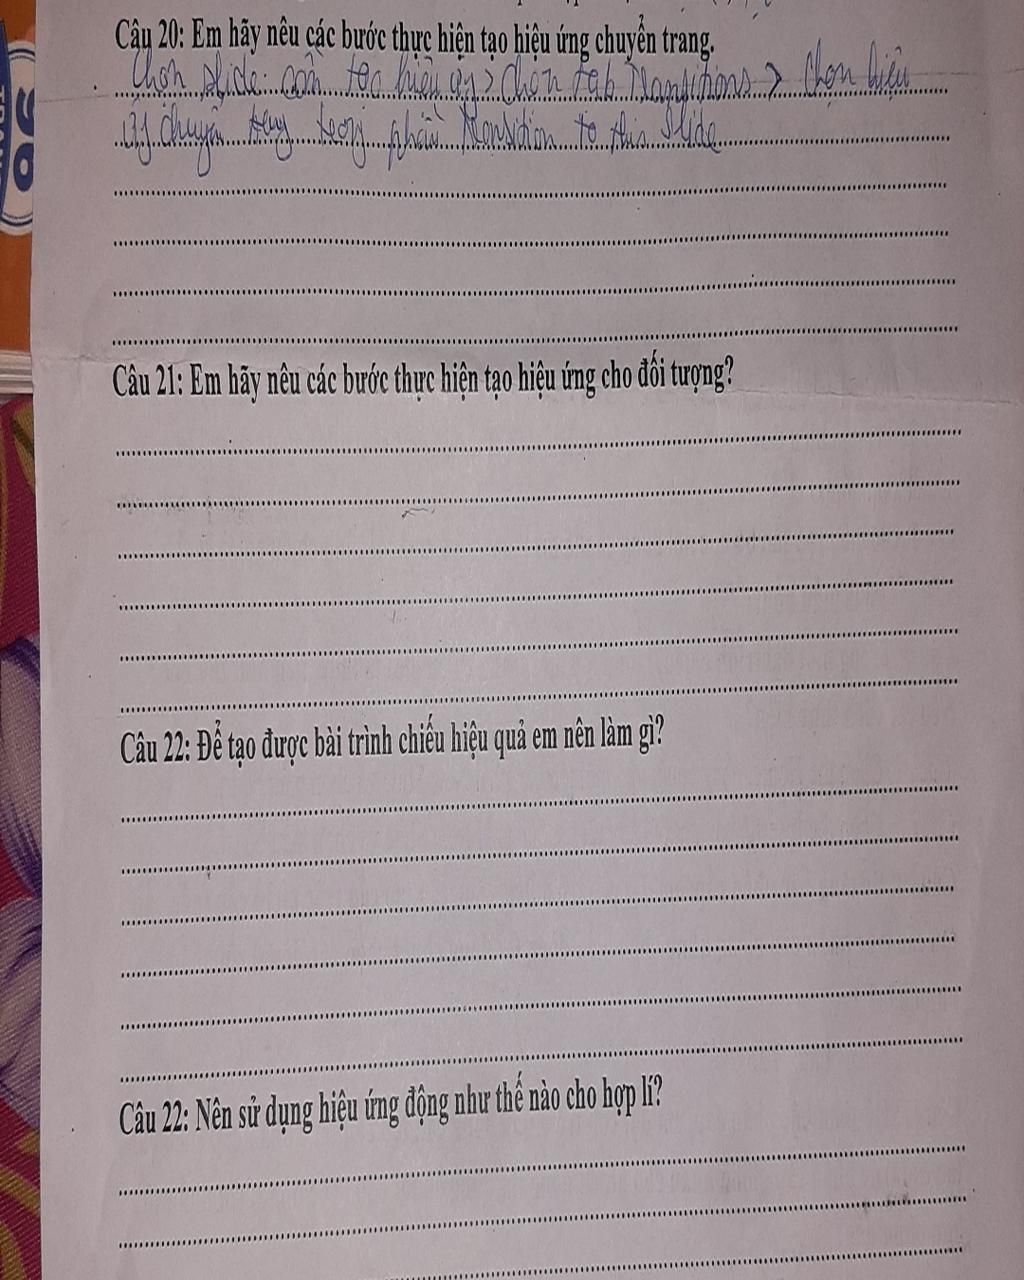 Câu 20: Em hãy nêu các bước thực hiện tạo hiệu ứng chuyển trang.
Chọn slide cần tạo hiệu ứng > Chọn tab Transitions > Chọn hiệu
ứng chuyển trang trong phần Transition to this Slide
Câu 21: Em hãy nêu các bước thực hiện tạo hiệu ứng cho đối tượng?
Câu 22: Để tạo được bài trình chiếu hiệu quả em nên làm gì?
Câu 22: Nên sử dụng hiệu ứng động như thế nào cho hợp lí?